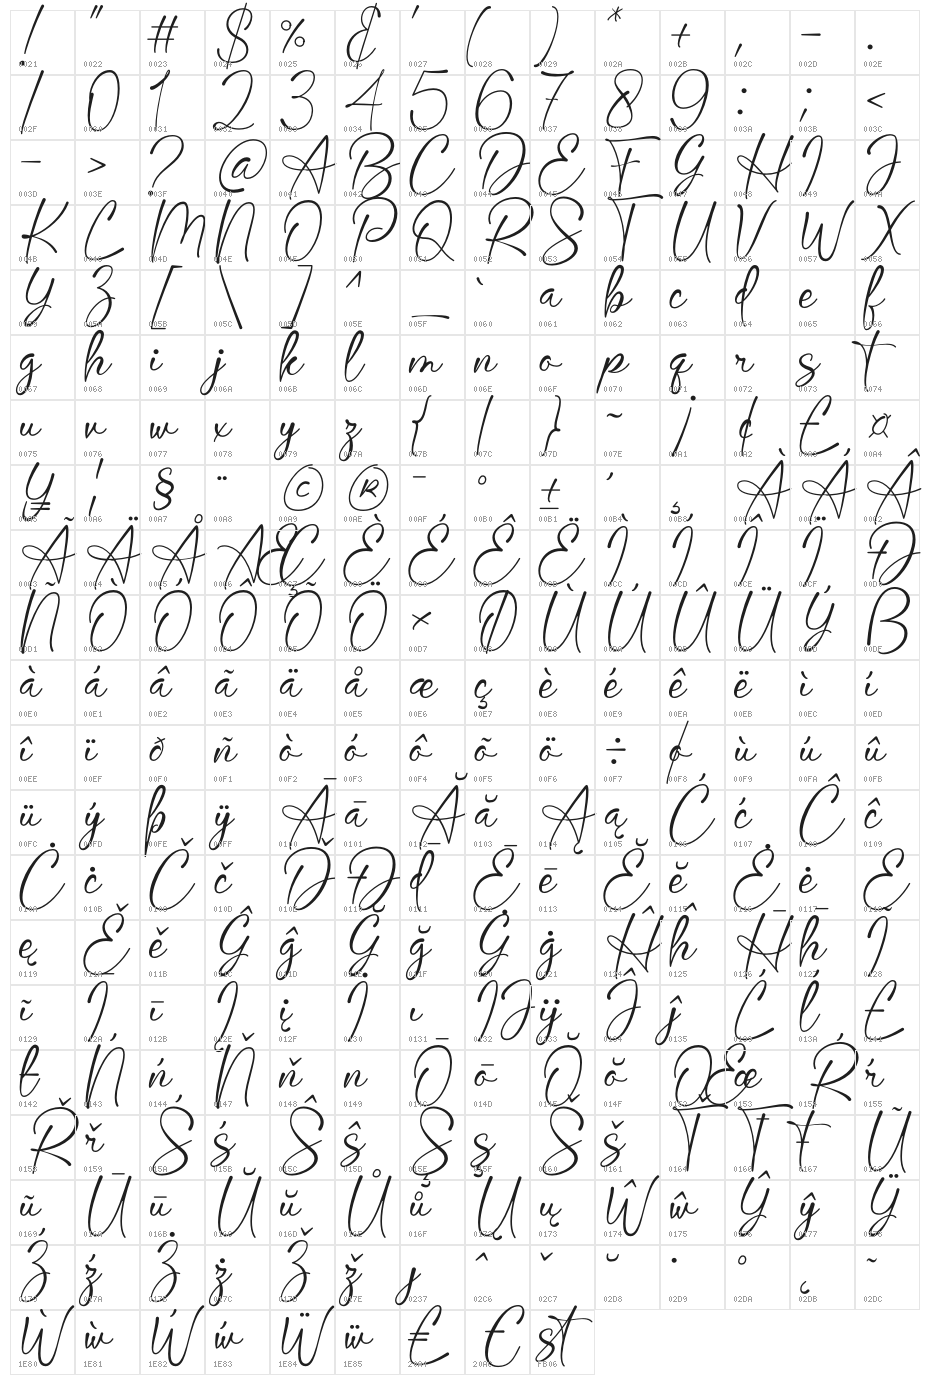 ! " # $ % & ' ( ) * + , - .
0021 0022 0023 0024 0025 0026 0027 0028 0029 002A 002B 002C 002D 002E
/ 0 1 2 3 4 5 6 7 8 9 : ; <
002F 0030 0031 0032 0033 0034 0035 0036 0037 0038 0039 003A 003B 003C
- > ? @ A B C D E F G H I J
003D 003E 003F 0040 0041 0042 0043 0044 0045 0046 0047 0048 0049 004A
K C M N O P Q R S T U V W X
004B 004C 004D 004E 004F 0050 0051 0052 0053 0054 0055 0056 0057 0058
Y Z [ \ ] ^ _ ` a b c d e f
0059 005A 005B 005C 005D 005E 005F 0060 0061 0062 0063 0064 0065 0066
g h i j k l m n o p q r s t
0067 0068 0069 006A 006B 006C 006D 006E 006F 0070 0071 0072 0073 0074
u v w x y z { | } ~ ¡ ¢ £ ¤
0075 0076 0077 0078 0079 007A 007B 007C 007D 007E 00A1 00A2 00A3 00A4
¥ ¦ § ¨ © ® ¯ ° ± ´ ¸ À Á Â
00A5 00A6 00A7 00A8 00A9 00AE 00AF 00B0 00B1 00B4 00B8 00C0 00C1 00C2
Ã Ä Å Æ Ç È É Ê Ë Ì Í Î Ï Ð
00C3 00C4 00C5 00C6 00C7 00C8 00C9 00CA 00CB 00CC 00CD 00CE 00CF 00D0
Ñ Ò Ó Ô Õ Ö × Ø Ù Ú Û Ü Ý Þ
00D1 00D2 00D3 00D4 00D5 00D6 00D7 00D8 00D9 00DA 00DB 00DC 00DD 00DE
à á â ã ä å æ ç è é ê ë ì í
00E0 00E1 00E2 00E3 00E4 00E5 00E6 00E7 00E8 00E9 00EA 00EB 00EC 00ED
î ï ð ñ ò ó ô õ ö ÷ ø ù ú û
00EE 00EF 00F0 00F1 00F2 00F3 00F4 00F5 00F6 00F7 00F8 00F9 00FA 00FB
ü ý þ ÿ Ā ā Ă ă Ą ą Ć ć Ĉ ĉ
00FC 00FD 00FE 00FF 0100 0101 0102 0103 0104 0105 0106 0107 0108 0109
Ċ ċ Č č Ď Đ đ Ē ē Ĕ ĕ Ė ė Ę
010A 010B 010C 010D 010E 0110 0111 0112 0113 0114 0115 0116 0117 0118
ę Ě ě Ĝ ĝ Ğ ğ Ġ ġ Ĥ ĥ Ħ ħ Ĩ
0119 011A 011B 011C 011D 011E 011F 0120 0121 0124 0125 0126 0127 0128
ĩ Ī ī Į į İ ı Ĳ ĳ Ĵ ĵ Ĺ ĺ Ł
0129 012A 012B 012E 012F 0130 0131 0132 0133 0134 0135 0139 013A 0141
ł Ń ń Ň ň ŉ Ō ō Ŏ ŏ Œ œ Ŕ ŕ
0142 0143 0144 0147 0148 0149 014C 014D 014E 014F 0152 0153 0154 0155
Ř ř Ś ś Ŝ ŝ Ş ş Š š Ť Ŧ ŧ Ũ
0158 0159 015A 015B 015C 015D 015E 015F 0160 0161 0164 0166 0167 0168
ũ Ū ū Ŭ ŭ Ů ů Ų ų Ŵ ŵ Ŷ ŷ Ÿ
0169 016A 016B 016C 016D 016E 016F 0172 0173 0174 0175 0176 0177 0178
Ź ź Ż ż Ž ž ȷ ˆ ˇ ˘ ˙ ˚ ˛ ˜
0179 017A 017B 017C 017D 017E 0237 02C6 02C7 02D8 02D9 02DA 02DB 02DC
Ẁ ẁ Ẃ ẃ Ẅ ẅ ₤ € st
1E80 1E81 1E82 1E83 1E84 1E85 20A4 20AC FB06